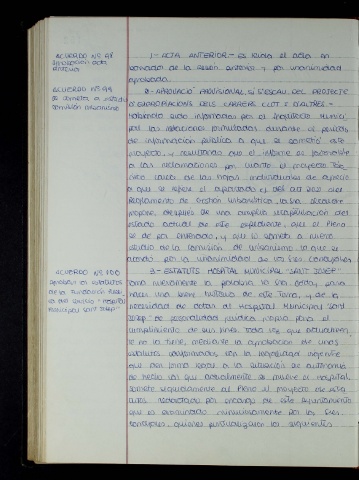 ACUERDO Nº 98
aprobación acta
anterior
1 - ACTA ANTERIOR - Es leída el acta en
borrador de la sesión anterior y por unanimidad
aprobada.
ACUERDO Nº 99
se someta a estudio
comisión urbanismo
2 - APROVACIÓ PROVISIONAL, SI S'ESCAU, DEL PROJECTE
D'URBANITZACIÓ DELS CARRERS CLOT I D'ALTRES -
habiendo sido informadas por el Arquitecto Munic.
pal las alegaciones formuladas durante el período
de información pública a que se sometió este
proyecto, y resultando que el informe es favorable
a las reclamaciones por cuanto el proyecto
de las hojas individuales de aprecio
a que se refiere el apartado del art
Reglamento de Gestión Urbanística, la Sra. Alcaldesa
propone, después de una amplia recapitulación del
estado actual de este expediente, que el Pleno
se dé por enterado, y que se someta a nuevo
estudio de la Comisión de Urbanismo, lo que se
acordó por la unanimidad de los Sres. Concejales.
ACUERDO Nº 100
aprobar los estatutos
de la fundación
"Hospital
Municipal Sant Josep"
3 - ESTATUTS HOSPITAL MUNICIPAL "SANT JOSEP"
Toma nuevamente la palabra la Sra. para
hacer una breve historia de este tema, y de la
necesidad de dotar al Hospital Municipal Sant
Josep de personalidad jurídica propia para el
cumplimiento de sus fines, toda vez que actualmen
te no la tiene, mediante la aprobación de unos
estatutos conformados con la legalidad vigente
que den forma legal a la situación de autonomía
de hecho con que actualmente se mueve el Hospital,
somete seguidamente al Pleno el proyecto de esta
tutos redactados por encargo de este Ayuntamiento
que es examinado minuciosamente por los Sres.
Concejales, quienes puntualizan los siguientes